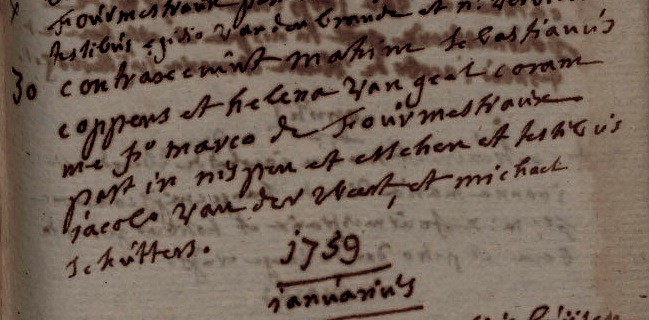 Fourmestraux
testibus egidio van den brande et n.
30 contraxerunt matrim sebastianus
coppens et helena van geel coram
me fr marco de Fourmestraux
past in nispen et esschen et testibus
jacobo van der west, et michael
schutters.
1759
januarius